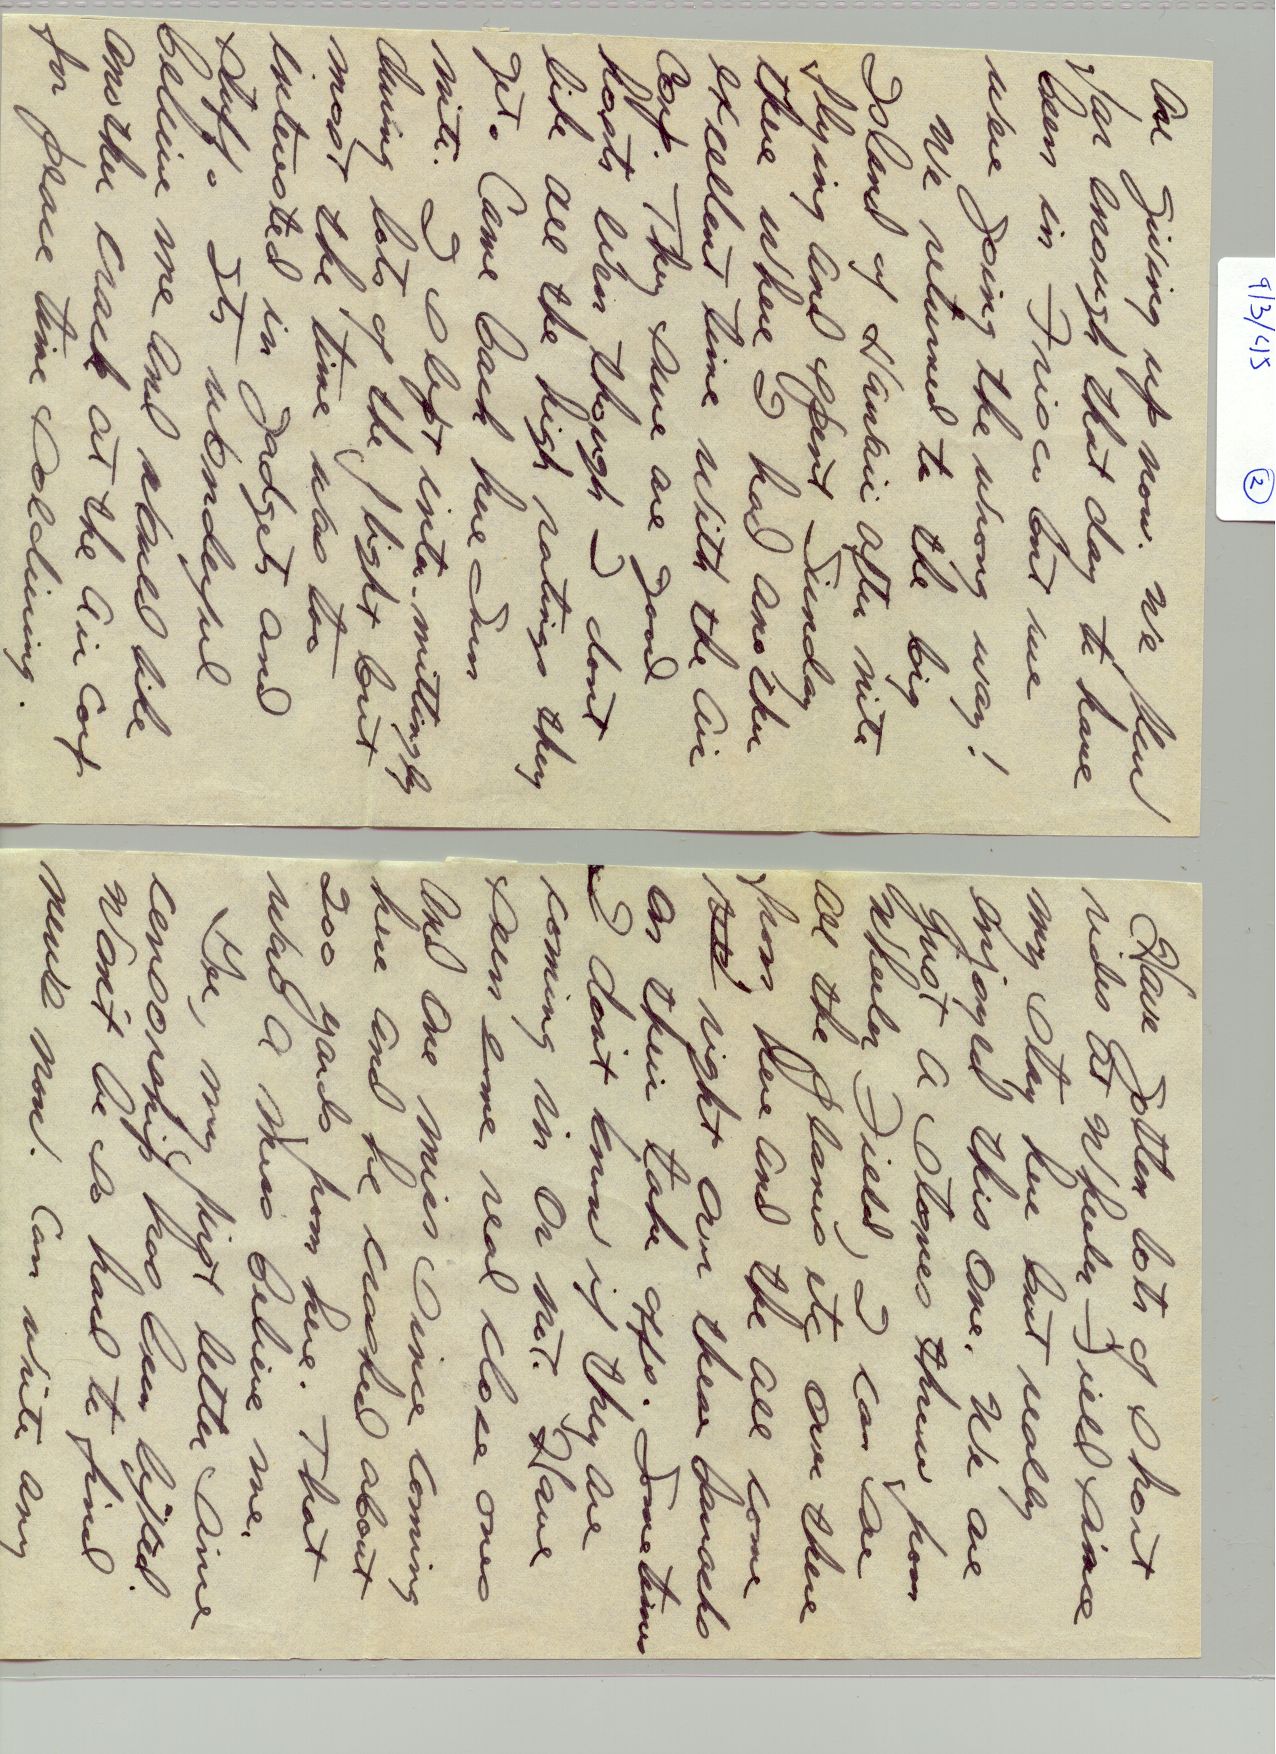 9/3/45 2
are giving up now. We flew
far enough that day to have
been in Frisco but we
were going the wrong way!
We returned to the big
Island of Hawaii after nite
flying and spent Sunday
there where I had another
excellent time with the Air
Corp. They sure are good
hosts even though I dont
like all the high ratings they
get. Came back here Sun
nite. I slept inter-mittingly
during lots of the flight but
most the time was too
interested in gadgets and
stuff. Its wonderful
believe me and would like
another crack at the Air Corp
for peace time soldiering.
Have gotten lots of short
rides at Wheeler Field since
my stay here but really
enjoyed this one. We are
just a stones throw from
Wheeler Field, I can see
all the planes etc over there
from here and the all come
right over these barracks
on their take offs. Sometimes
I don't know if they are
coming in or not. Have
seen some real close ones
and one miss since coming
here and he crashed about
200 yards from here. That
was a mess believe me.
Gee, my first letter since
censorship has been lifted.
Won't be so hard to find
news now. Can write any